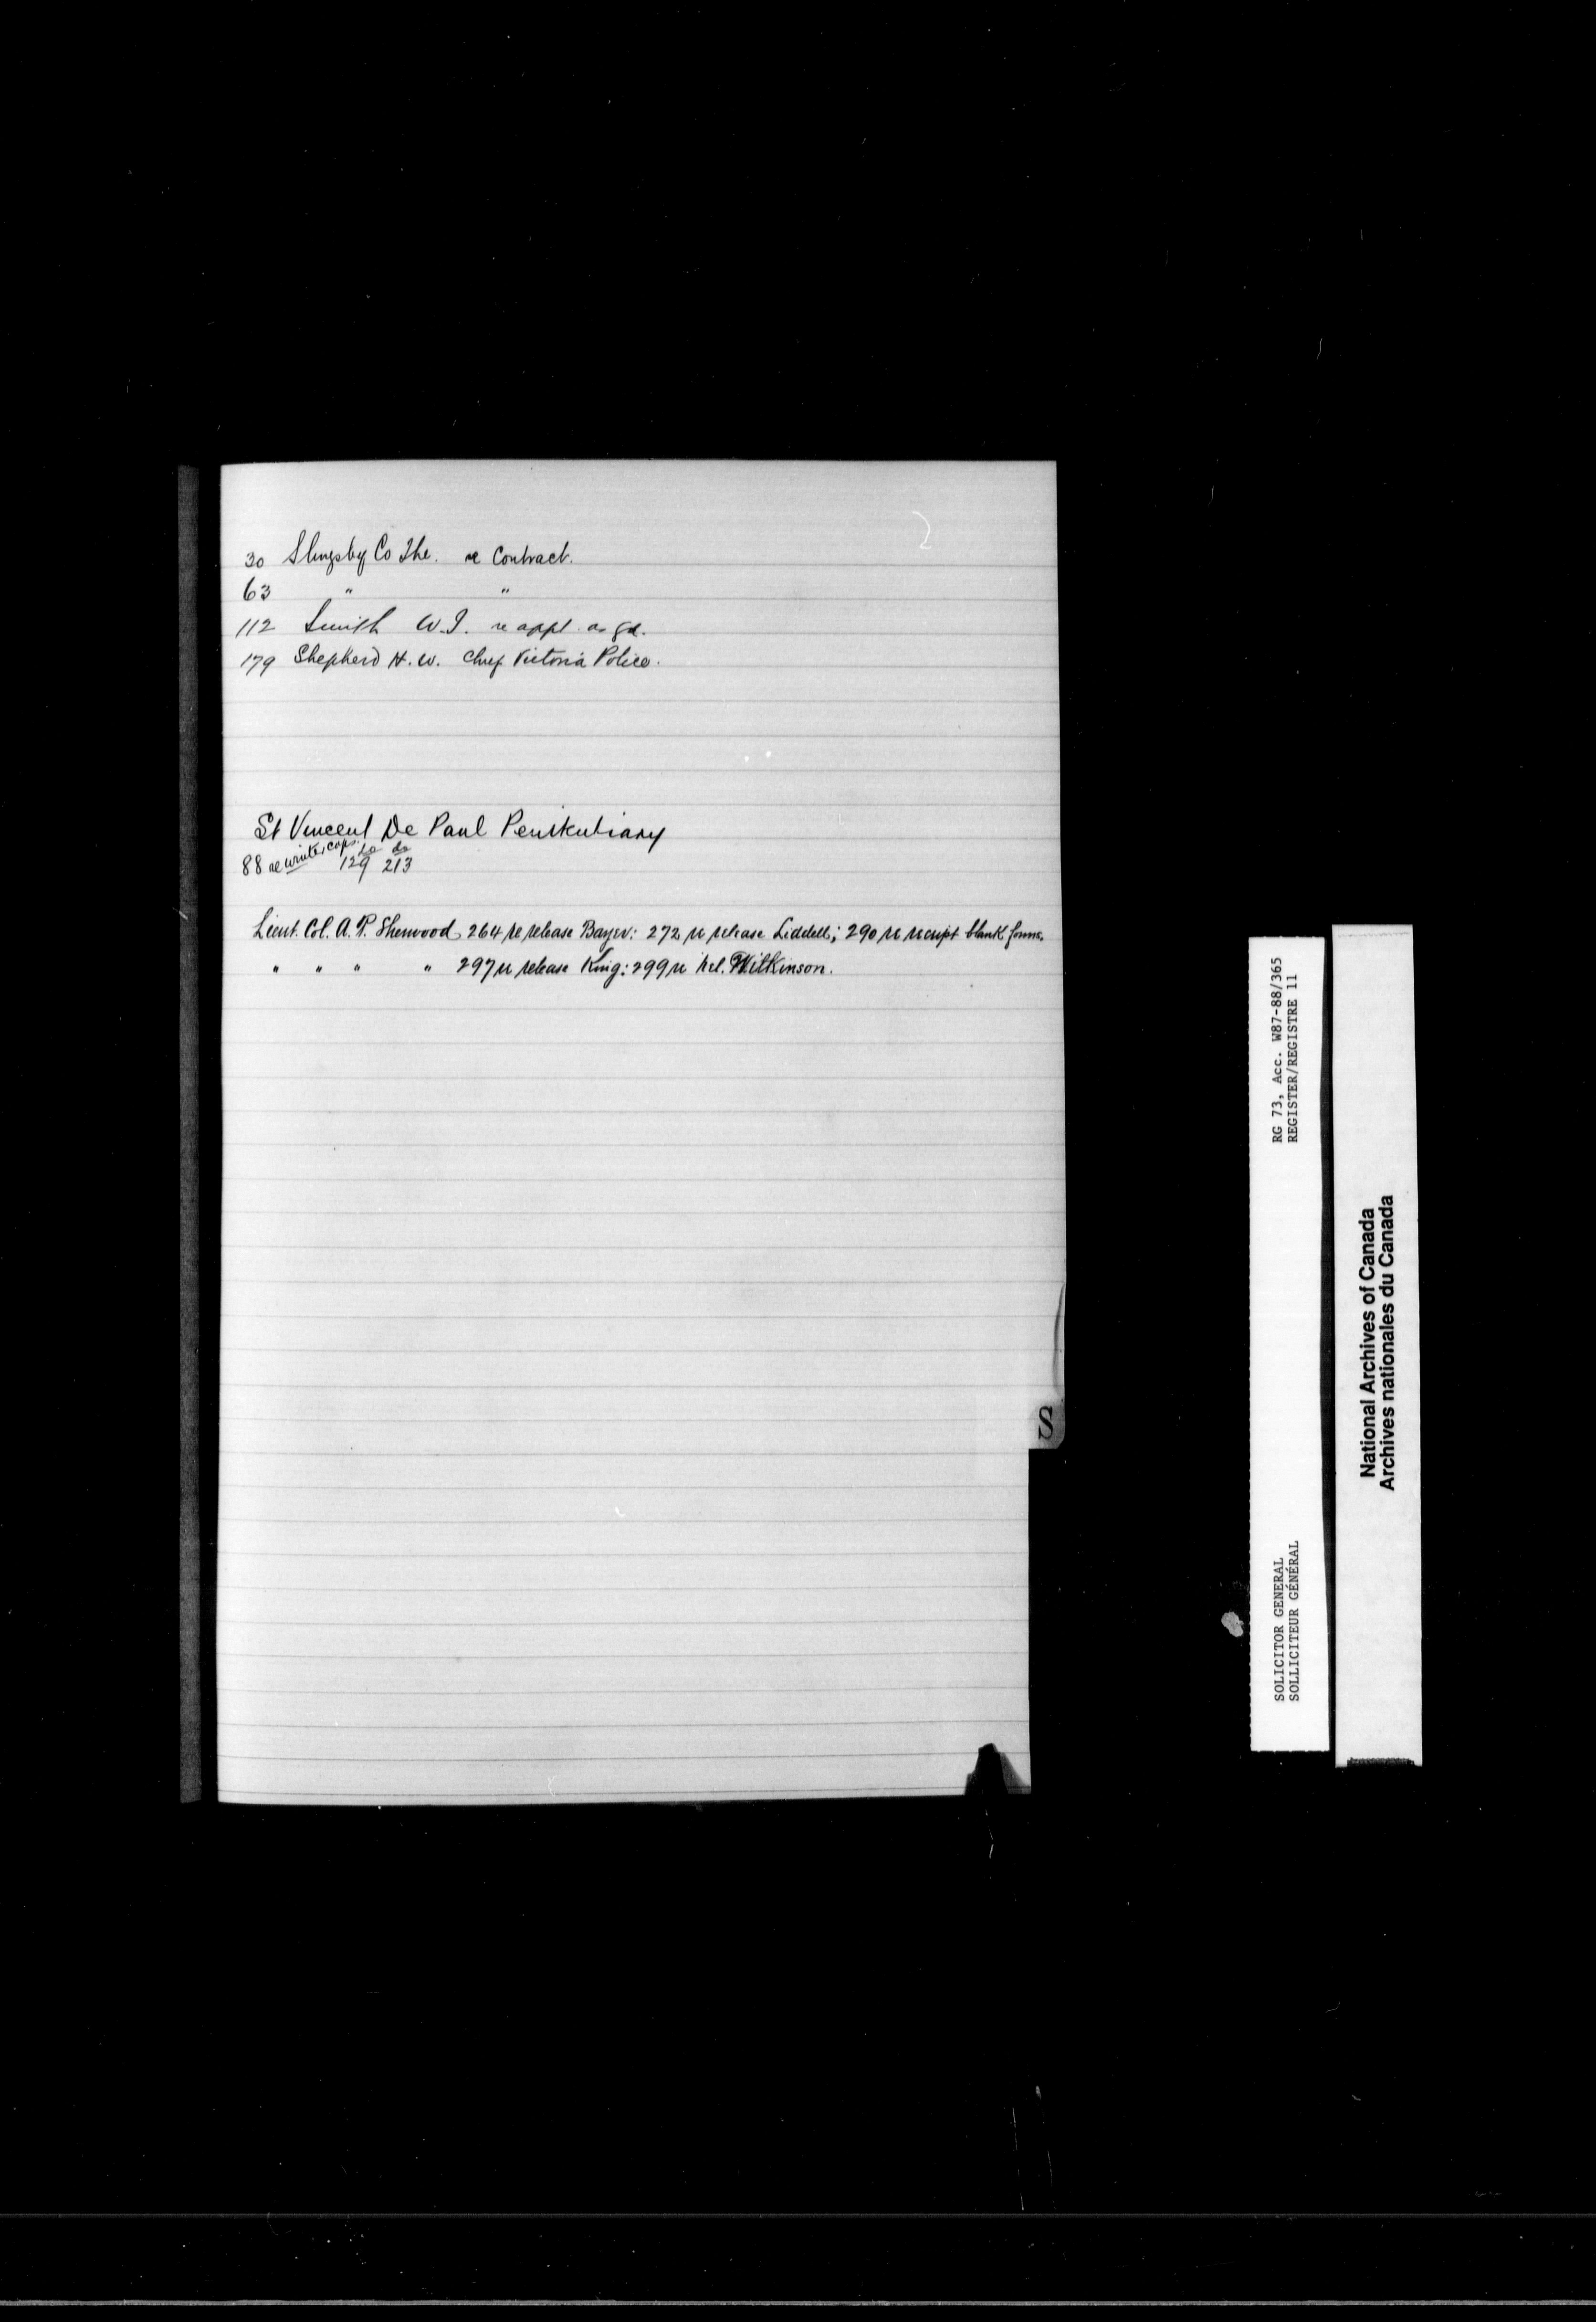 30 Slingsby Co The. re Contract.
63 " "
112 Smith W.J. re appt. as gd.
179 Shepherd H. W. Chief Victoria Police.
St Vincent De Paul Penitentiary
88 re winter caps. 129 do 213 do
Lieut. Col. A. P. Sherwood 264 re release Bayer: 272 re release Liddell; 290 re receipt blank forms.
" " " " 297 re release King: 299 re rel. Wilkinson.
S
RG 73, Acc. W87-88/365
REGISTER/REGISTRE 11
SOLICITOR GENERAL
SOLLICITEUR GÉNÉRAL
National Archives of Canada
Archives nationales du Canada